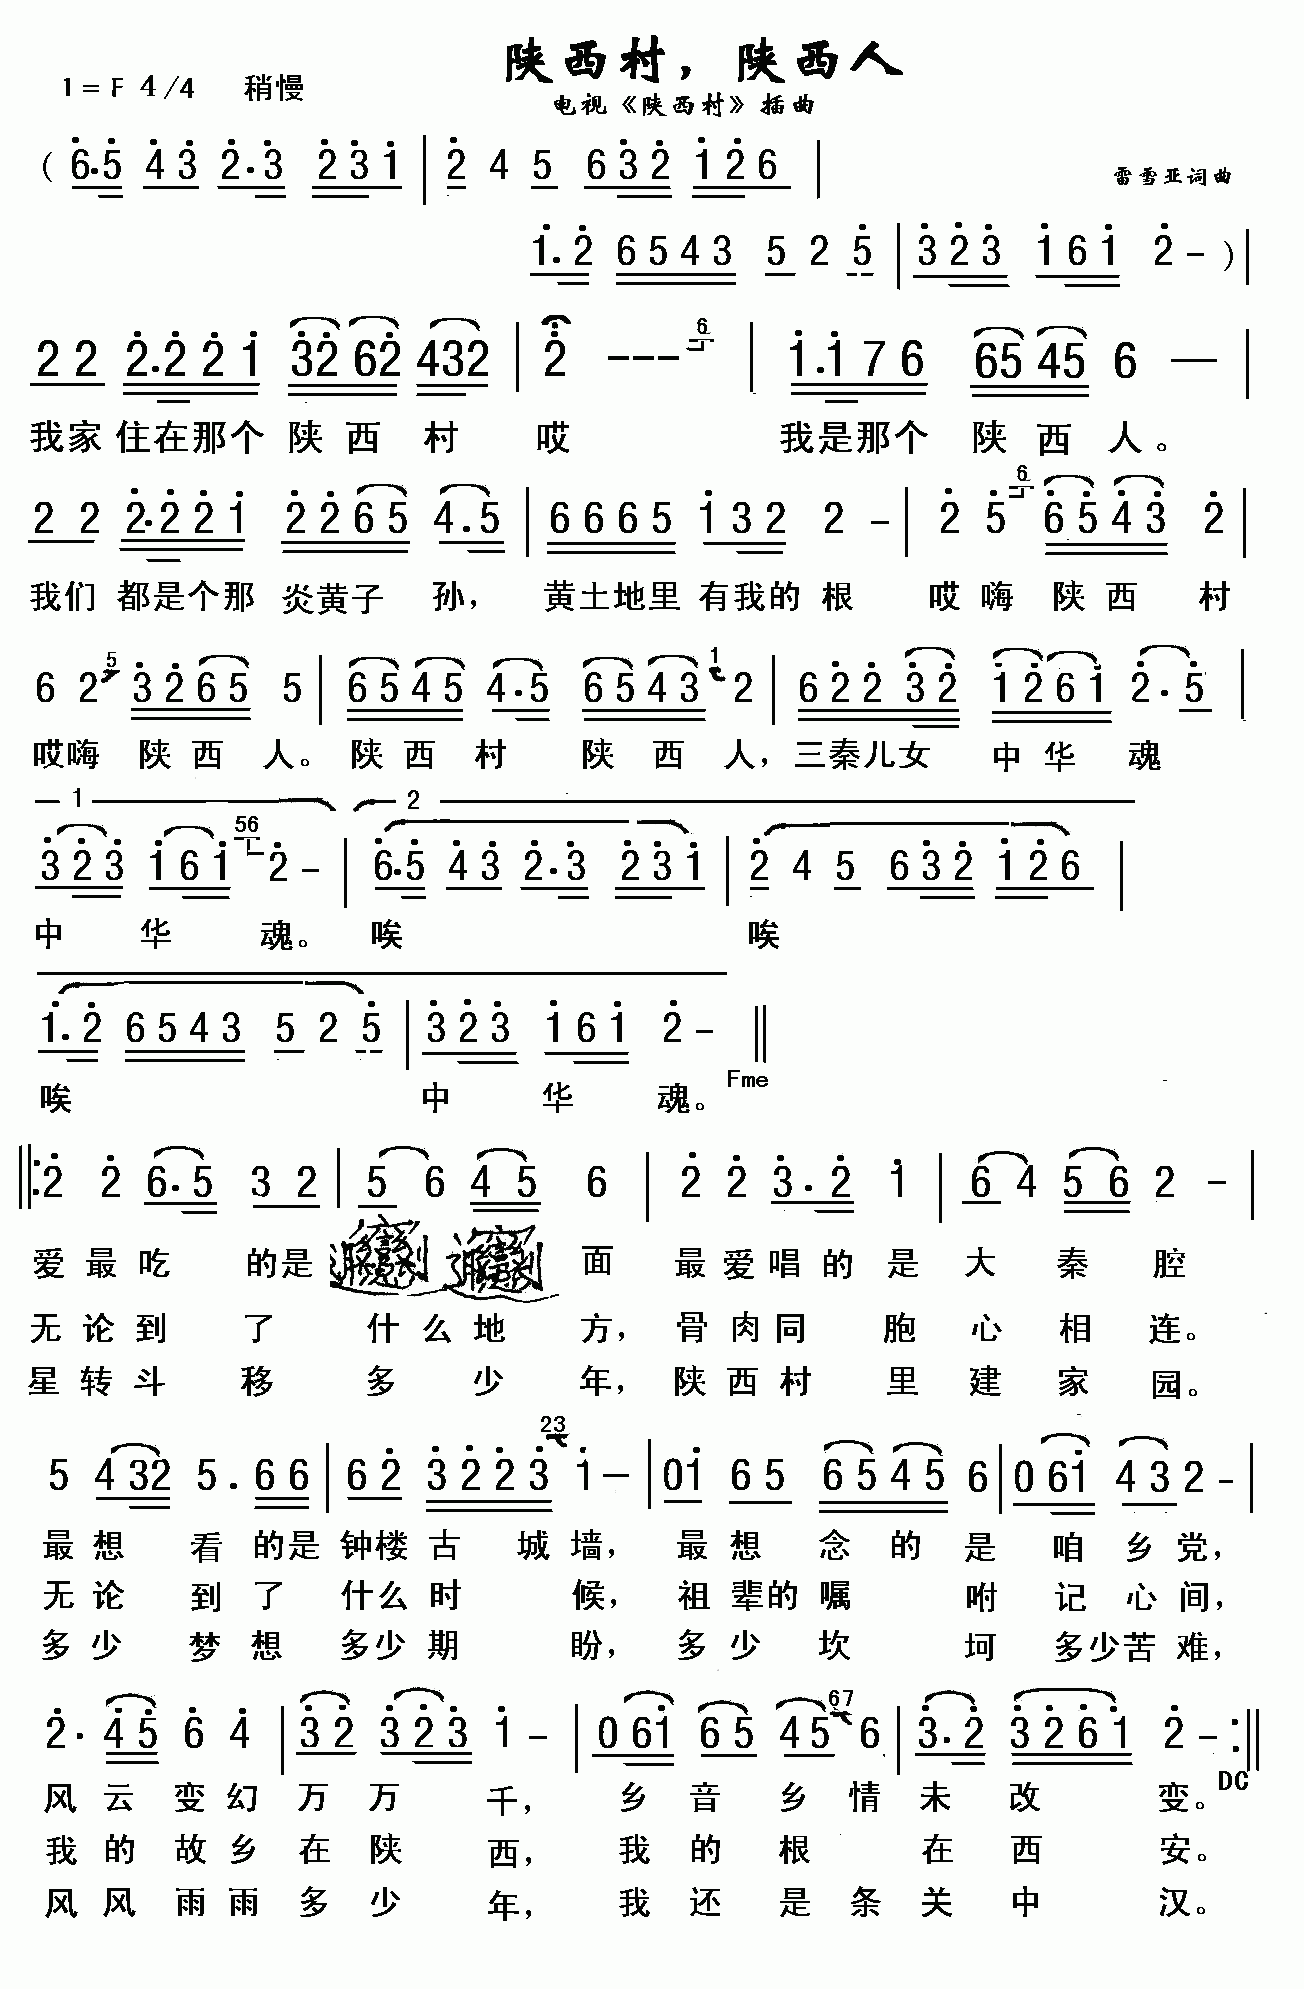 陕西村，陕西人
1 = F 4/4 稍慢
电视《陕西村》插曲
雷雪亚词曲
( 6.5 4 3 2.3 2 3 1 | 2 4 5 6 3 2 1 2 6 |
1.2 6 5 4 3 5 2 5 | 3 2 3 1 6 1 2 - ) |
2 2 2.2 2 1 32 62 432 | 2 - - - 6 | 1.1 7 6 65 45 6 — |
我家 住在那个 陕 西 村 哎 我是那个 陕 西 人。
2 2 2.2 2 1 2 2 6 5 4.5 | 6 6 6 5 1 3 2 2 - | 2 5 6 6 5 4 3 2 |
我们 都是个那 炎黄子 孙， 黄土地里 有我的 根 哎 嗨 陕 西 村
6 2 5 3 2 6 5 5 | 6 5 4 5 4.5 6 5 4 3 1 2 | 6 2 2 3 2 1 2 6 1 2.5 |
哎嗨 陕 西 人。 陕 西 村 陕 西 人，三秦儿女 中 华 魂
1 2
3 2 3 1 6 1 56 2 - | 6.5 4 3 2.3 2 3 1 | 2 4 5 6 3 2 1 2 6 |
中 华 魂。 唉 唉
1.2 6 5 4 3 5 2 5 | 3 2 3 1 6 1 2 - ||
唉 中 华 魂。 Fme
||: 2 2 6.5 3 2 | 5 6 4 5 6 | 2 2 3.2 1 | 6 4 5 6 2 - |
爱 最 吃 的是 𰻞 𰻞 面 最 爱 唱 的 是 大 秦 腔
无 论 到 了 什 么 地 方， 骨 肉 同 胞 心 相 连。
星 转 斗 移 多 少 年， 陕 西 村 里 建 家 园。
5 4 32 5. 6 6 | 6 2 3 2 2 3 23 1 — | 01 6 5 6 5 4 5 6 | 0 61 4 3 2 - |
最 想 看 的是 钟楼 古 城 墙， 最 想 念 的 是 咱 乡 党，
无 论 到 了 什么 时 候， 祖 辈的 嘱 咐 记 心 间，
多 少 梦 想 多少 期 盼， 多 少 坎 坷 多少苦 难，
2. 4 5 6 4 | 3 2 3 2 3 1 - | 0 61 6 5 4 5 67 6 | 3.2 3 2 6 1 2 - :||
DC
风 云 变 幻 万 万 千， 乡 音 乡 情 未 改 变。
我 的 故 乡 在 陕 西， 我 的 根 在 西 安。
风 风 雨 雨 多 少 年， 我 还 是 条 关 中 汉。